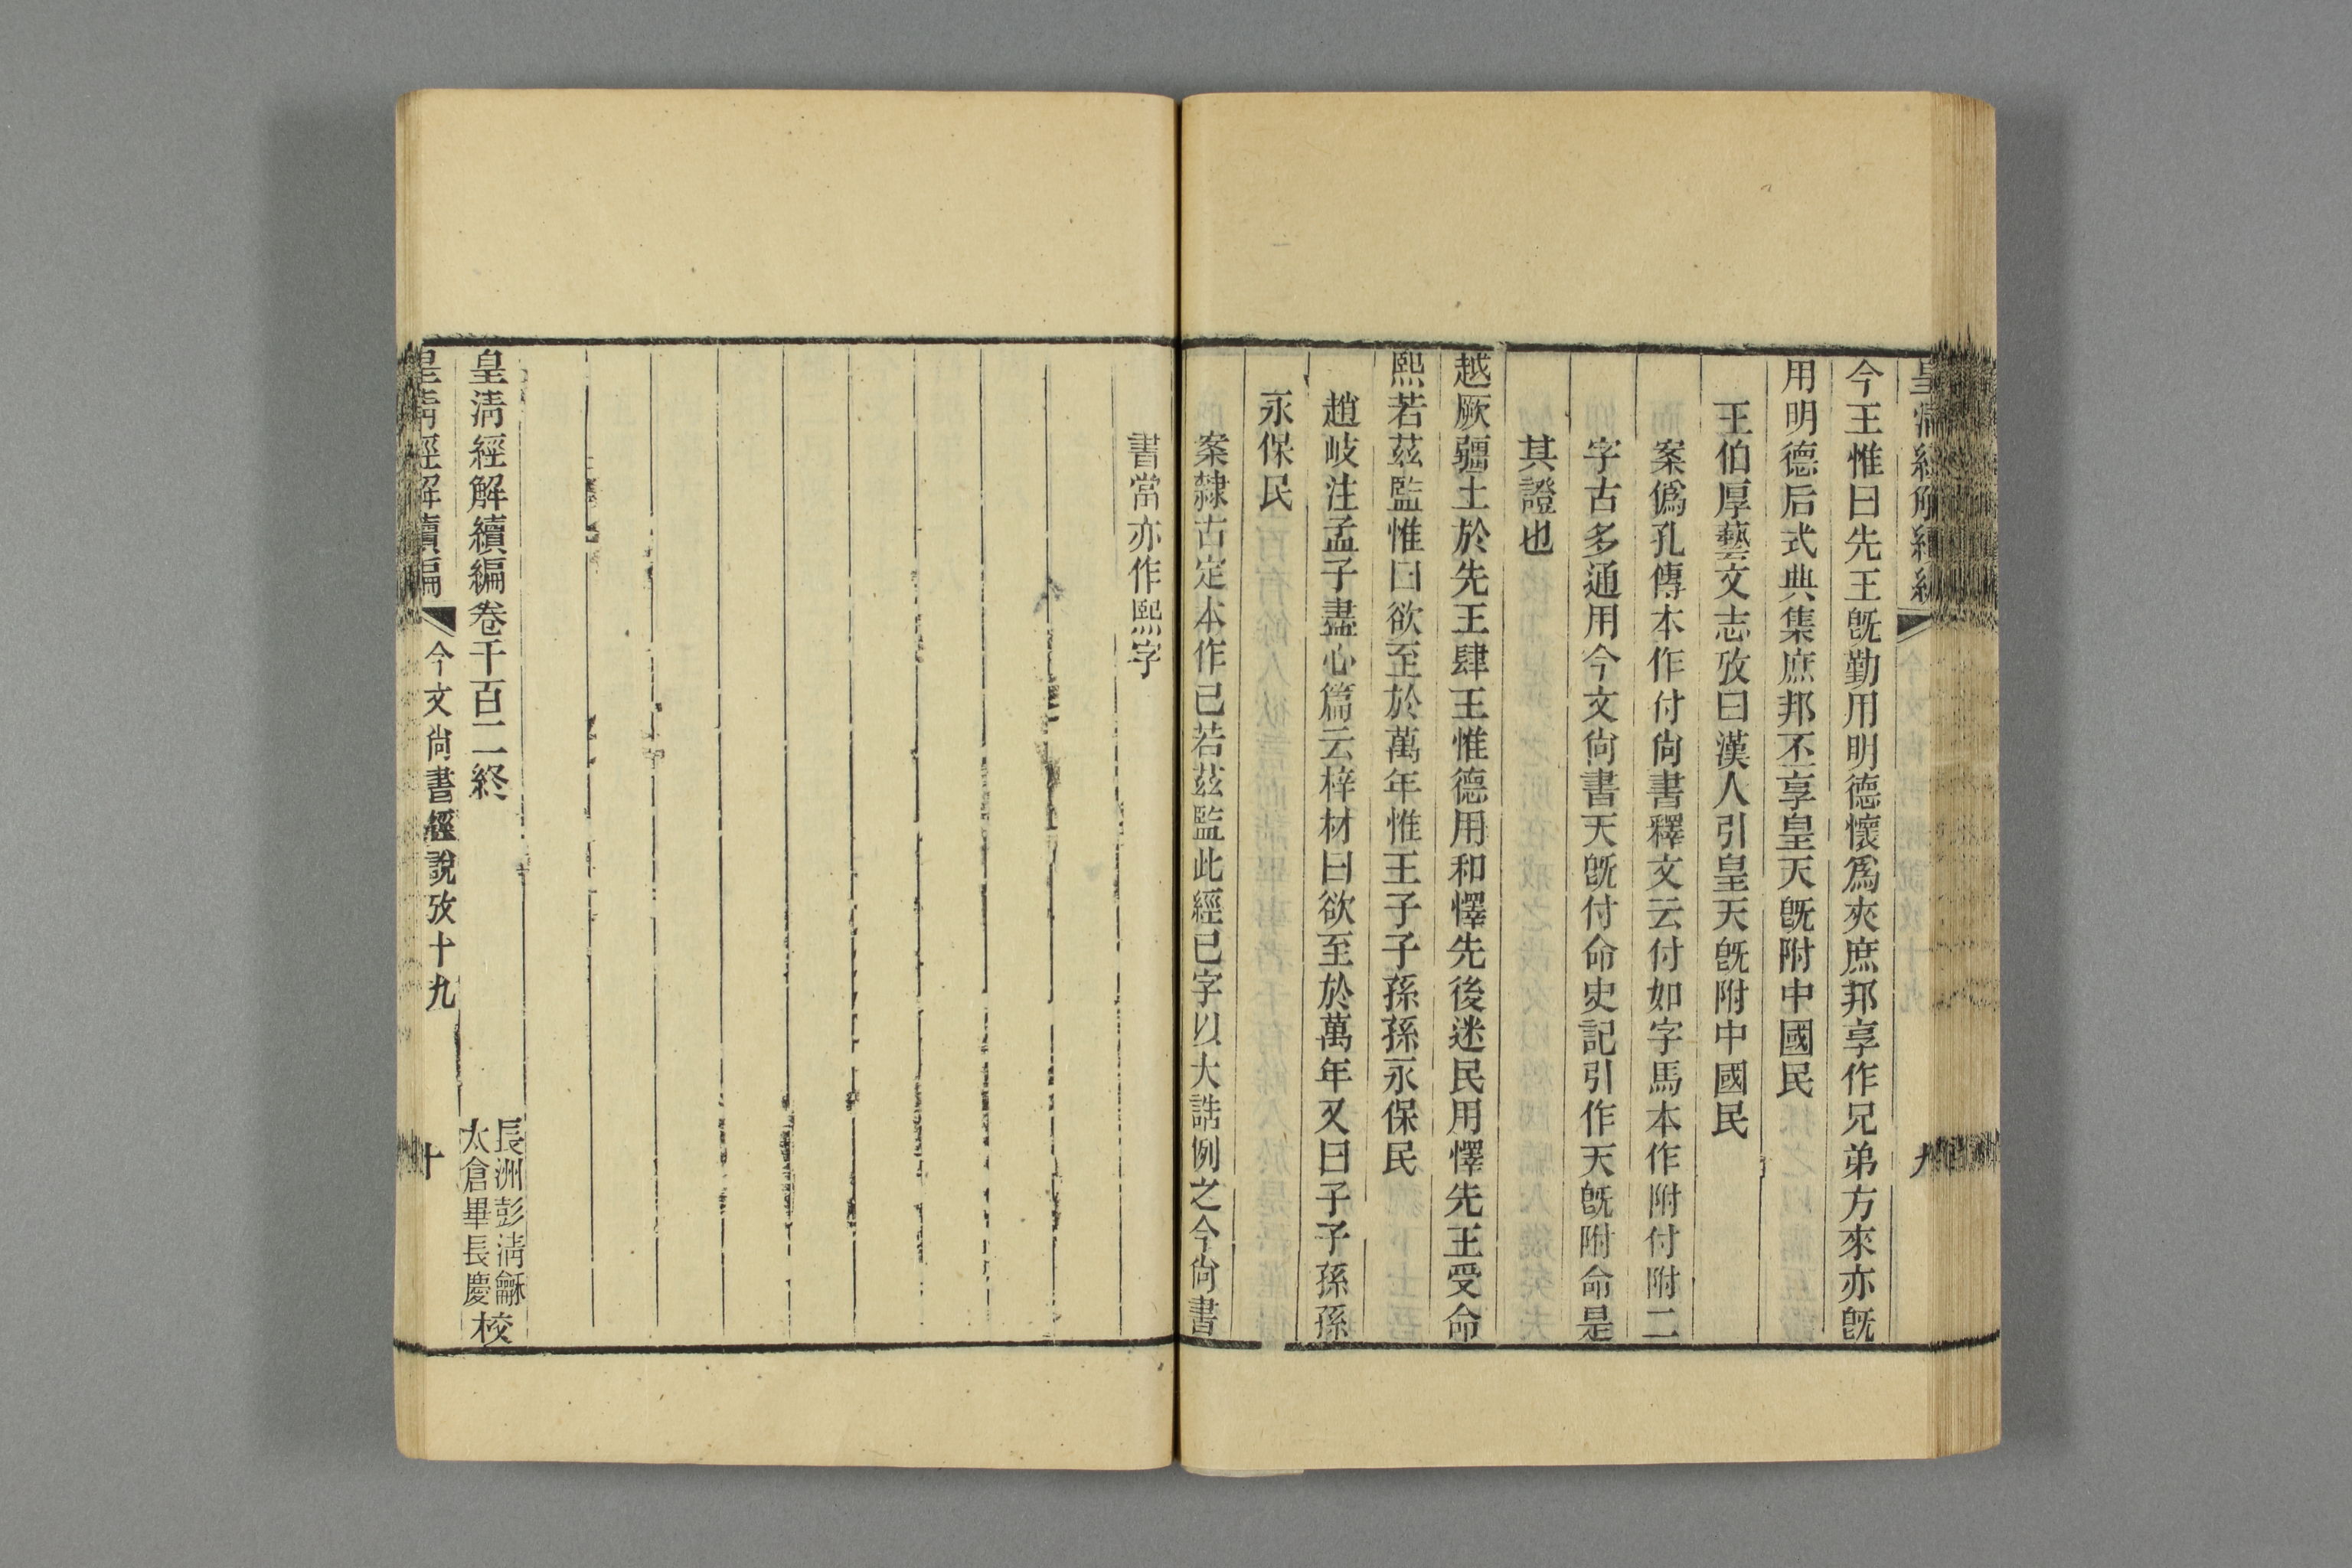 皇清經解續編
九
今王惟曰先王旣勤用明德懷爲夾庶邦享作兄弟方來亦旣
用明德后式典集庶邦丕享皇天旣附中國民
王伯厚藝文志攷曰漢人引皇天旣附中國民
案僞孔傳本作付尙書釋文云付如字馬本作附付附二
字古多通用今文尙書天旣付命史記引作天旣附命是
其證也
越厥疆土於先王肆王惟德用和懌先後迷民用懌先王受命
熙若茲監惟曰欲至於萬年惟王子子孫孫永保民
趙岐注孟子盡心篇云梓材曰欲至於萬年又曰子子孫孫
永保民
案隸古定本作已若茲監此經已字以大誥例之今尙書
書當亦作熙字
皇淸經解續編卷千百二終
長洲彭淸龢
太倉畢長慶
校
皇淸經解續編
今文尙書經說攷十九
十